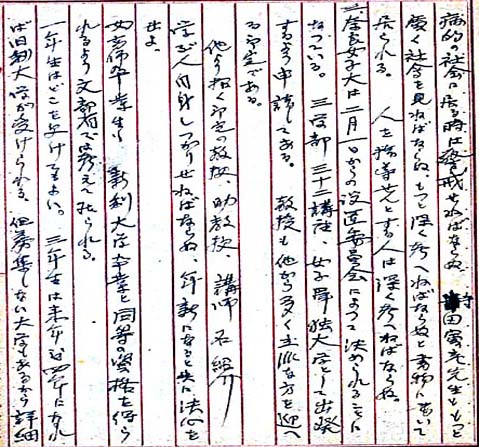 病的の社会に居る時は警戒せねばならぬ 寺田寅彦先生ももっと
廣く社会を見ねばならぬ、もっと深く考へねばならぬと書物に書いて
居られる。 人を指導せんとする人は深く考へねばならぬ。
奈良女子大は二月一日からの設置委員会によって決められることに
なっている。 三学部 三十二講座、女子単独大学として出発
するよう申請してある。 教授も他から多く立派な方を迎へ
る予定である。
他より招く予定の教授、助教授、講師 名紹介
学ぶ人自身しっかりせねばならぬ、年新になると共に決心を
せよ。
女高師卒業生 新制大学卒業と同等の資格を得ら
れるよう文部省では考えて居られる。
一年生はどこを受けてもよい。 三年生は来年 四年になれ
ば旧制大学が受けられる 但募集しない大学もあるから詳細